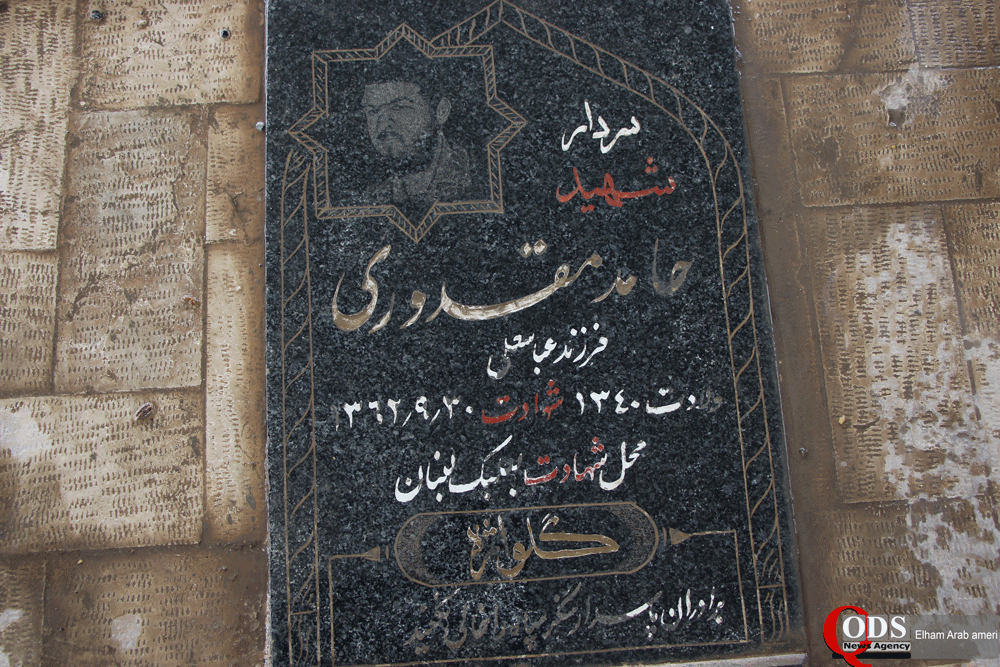 سردار
شهید
حامد مقدوری
فرزند عباسعلی
ولادت ۱۳۴۰ شهادت ۱۳۶۲/۹/۳۰
محل شهادت بعلبک لبنان
QODS
News Agency
Elham Arab ameri